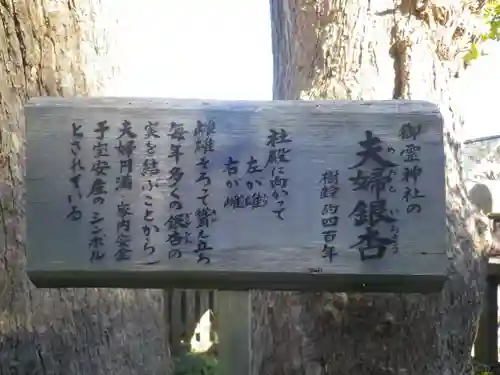 御霊神社の
夫婦銀杏
めおと いちょう
樹齢約四百年
社殿に向かって
左が雄
右が雌
雌雄そろって聳え立ち
毎年多くの銀杏の
実を結ぶことから、
夫婦円満・家内安全
子宝安産のシンボル
とされている